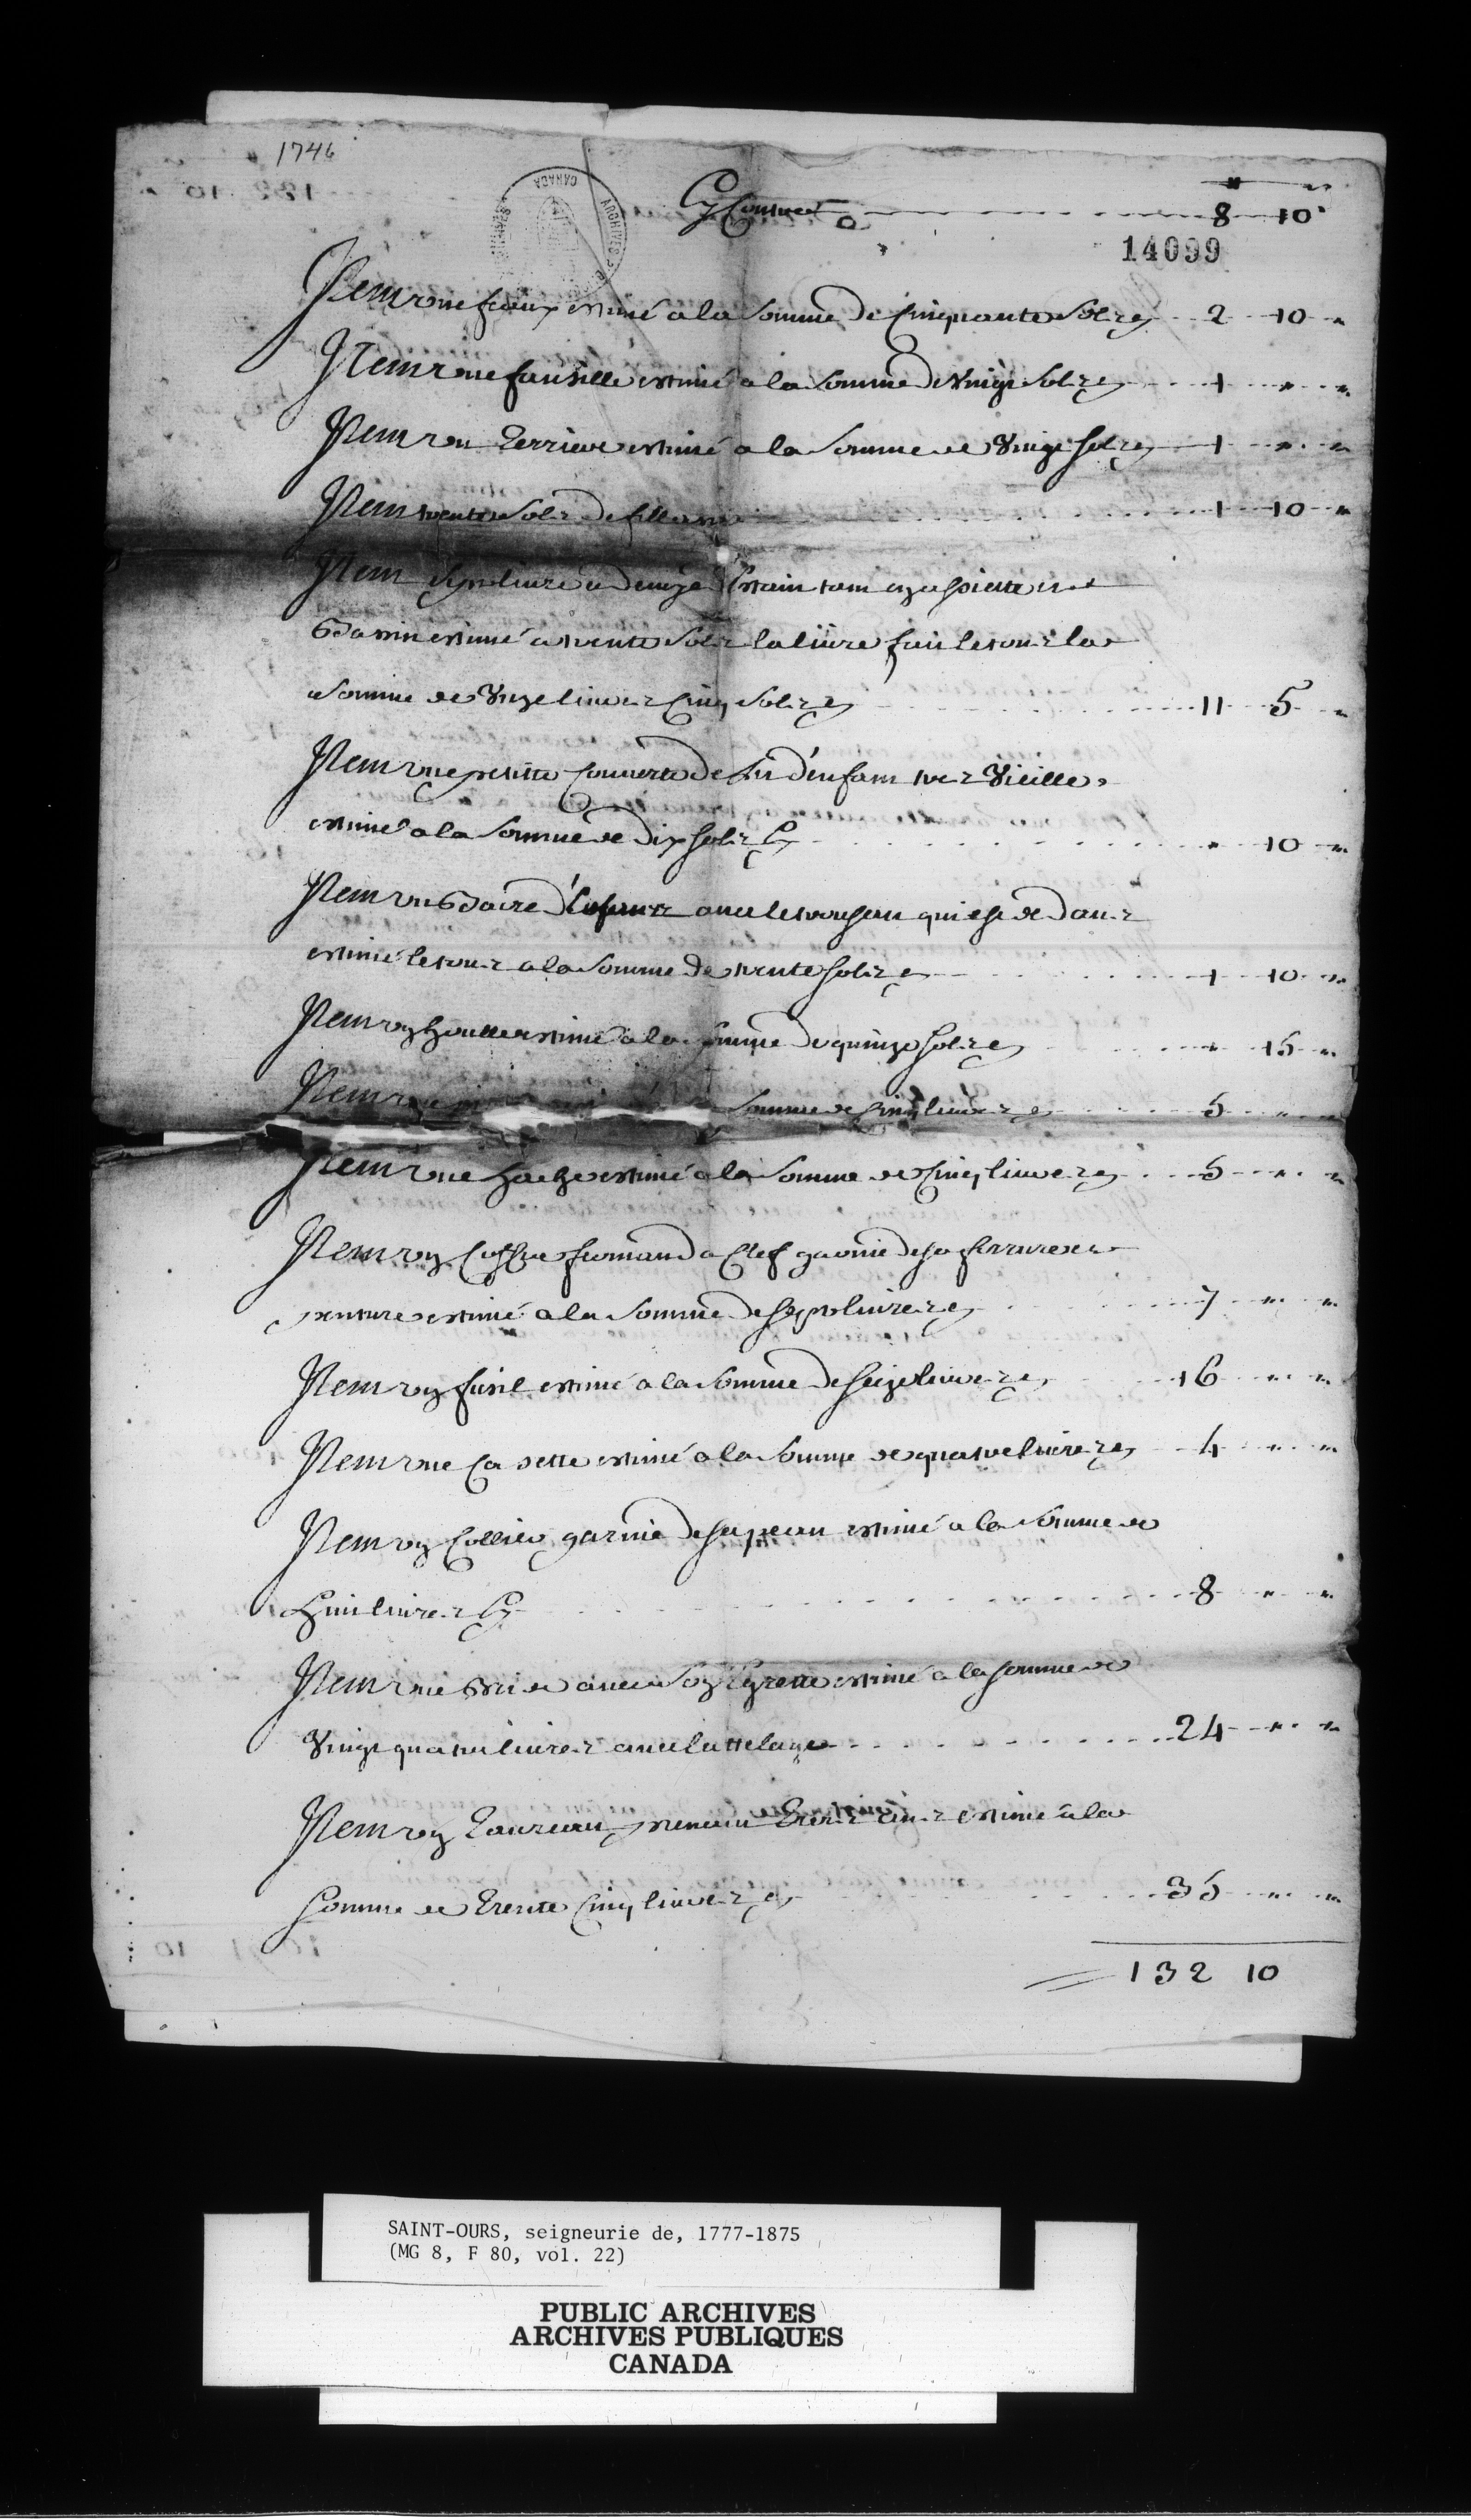 1746
CANADA
ARCHIVES
Cy Contre 8 10
14099
Item une faux estimé a la Somme de Cinquante Sols Cy 2 10 "
Item une faucille estimé a la Somme de Vingt Sols Cy 1 " "
Item un terriere estimé a la Somme de Vingt Sols Cy 1 " "
Item trente Sols de 1 10 "
Item Sept livre et demye destain tant en assiette et
Bassin estimé a trente Sols la livre fait le tout la
Somme de Unze livres Cinq Sols Cy 11 5 "
Item une petitte Couverte de lit d'enfant tres Vieille
estimé a la Somme de Dix Sols Cy " 10 "
Item un d'Enfant avec le qui est de Dans
estimé le tout a la Somme de trente Sols Cy 1 10 "
Item un estimé a la Somme de quinze Sols Cy " 15 "
Item une Somme de Cinq livres Cy 5 " "
Item une hache estimé a la Somme de Cinq livres Cy 5 " "
Item un Coffre fermand a Clef garnie de sa ferrure et
penture estimé a la Somme de Sept livres Cy 7 " "
Item un fusil estimé a la Somme de Seize livres Cy 16 " "
Item une Cassette estimé a la Somme de quatre livres Cy 4 " "
Item un Collier garnie de sa peau estimé a la Somme de
huit livres Cy 8 " "
Item une avec Son estimé a la Somme de
Vingt quatre livres avec lattelage 24 " "
Item un Taureau prenant Trois ans estimé a la
Somme de Trente Cinq livres Cy 35 " "
132 10
SAINT-OURS, seigneurie de, 1777-1875
(MG 8, F 80, vol. 22)
PUBLIC ARCHIVES
ARCHIVES PUBLIQUES
CANADA